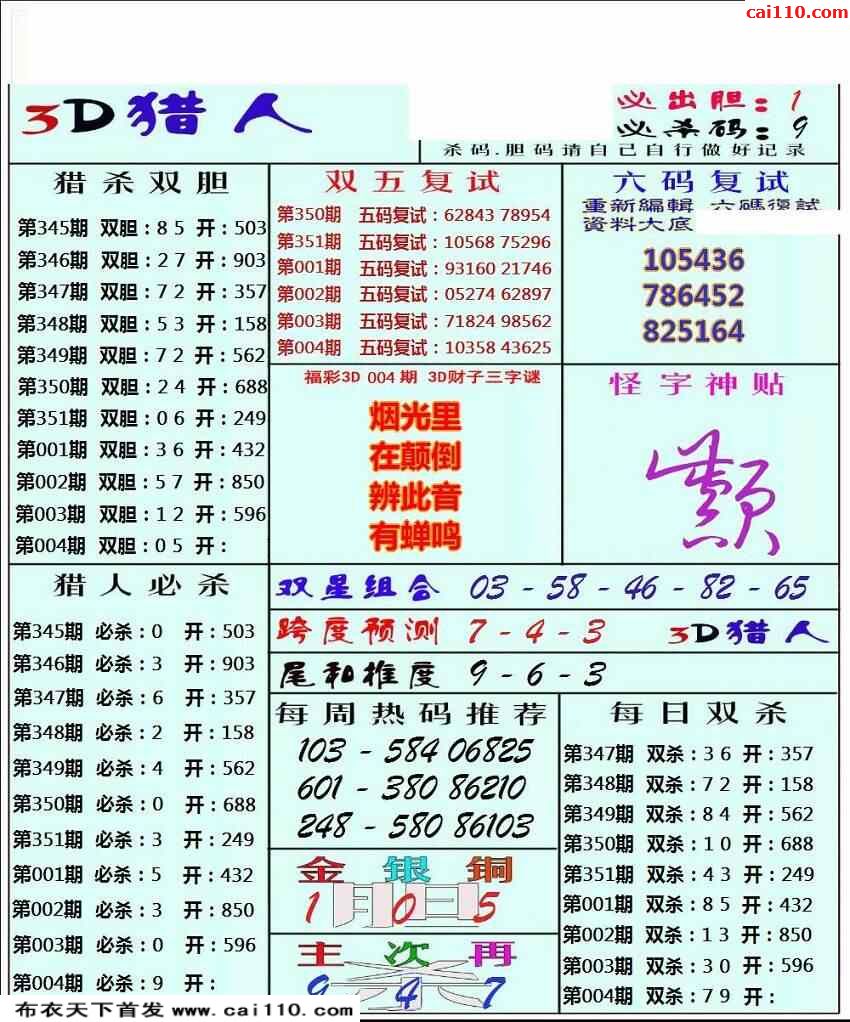 cai110.com
3D猎人
必出胆:1
必杀码:9
杀码.胆码请自己自行做好记录
猎杀双胆
第345期 双胆:85 开:503
第346期 双胆:27 开:903
第347期 双胆:72 开:357
第348期 双胆:53 开:158
第349期 双胆:72 开:562
第350期 双胆:24 开:688
第351期 双胆:06 开:249
第001期 双胆:36 开:432
第002期 双胆:57 开:850
第003期 双胆:12 开:596
第004期 双胆:05 开:
双五复试
第350期 五码复试:62843 78954
第351期 五码复试:10568 75296
第001期 五码复试:93160 21746
第002期 五码复试:05274 62897
第003期 五码复试:71824 98562
第004期 五码复试:10358 43625
六码复试
重新編輯 六碼復試
資料大底
105436
786452
825164
福彩3D 004期 3D财子三字谜
烟光里
在颠倒
辨此音
有蝉鸣
怪字神贴
猎人必杀
第345期 必杀:0 开:503
第346期 必杀:3 开:903
第347期 必杀:6 开:357
第348期 必杀:2 开:158
第349期 必杀:4 开:562
第350期 必杀:0 开:688
第351期 必杀:3 开:249
第001期 必杀:5 开:432
第002期 必杀:3 开:850
第003期 必杀:0 开:596
第004期 必杀:9 开:
双星组合 03-58-46-82-65
跨度预测 7-4-3 3D猎人
尾和椎度 9-6-3
每周热码推荐
103-584 06825
601-380 86210
248-580 86103
金银铜
1 0 5
主次再
9 4 7
每日双杀
第347期 双杀:36 开:357
第348期 双杀:72 开:158
第349期 双杀:84 开:562
第350期 双杀:10 开:688
第351期 双杀:43 开:249
第001期 双杀:85 开:432
第002期 双杀:13 开:850
第003期 双杀:30 开:596
第004期 双杀:79 开:
布衣天下首发 www.cai110.com